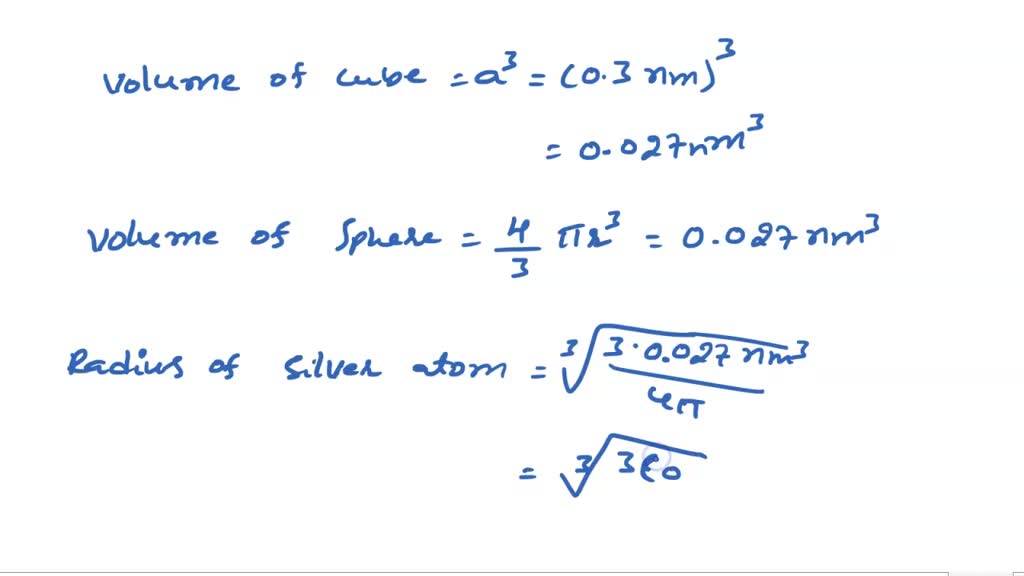 Volume of cube = a³ = (0.3 nm)³
= 0.027 nm³
Volume of Sphere = 4/3 πr³ = 0.027 nm³
Radius of silver atom = ∛(3·0.027 nm³ / 4π)
= ∛(3(0